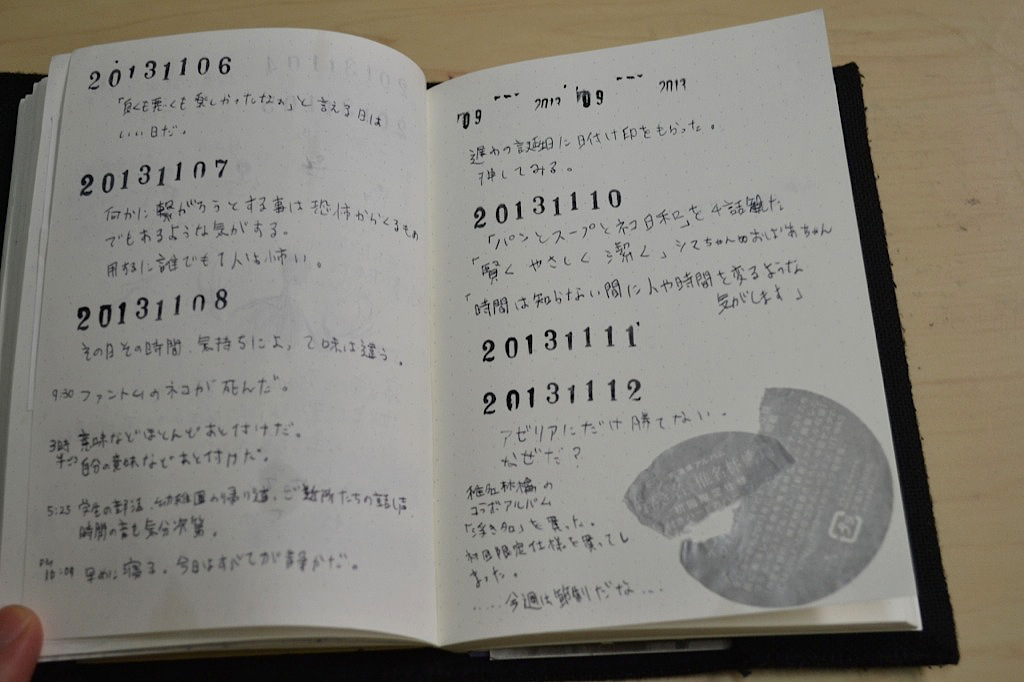 20131106
「良くも悪くも楽しかったなぁ」と言える日は
いい日だ。
20131107
何かに繋がろうとする事は恐怖からくるもの
でもあるような気がする。
用するに誰でも1人は怖い。
20131108
その日その時間、気持ちによって味は違う。
9:30 ファントムのネコが死んだ。
3時 意味などほとんどあと付けだ。
自分の意味などあと付けだ。
5:25 学生の部活、幼稚園の帰り道、ご近所たちの話し声
時間の音も気分次第。
10:09 早めに寝る。今日はすべてが静かだ。
09 2013 09 2013
遅めの誕生日に日付け印をもらった。
押してみる。
20131110
「パンとスープとネコ日和」を4話観た
「賢く やさしく 潔く」シマちゃんのおばあちゃん
「時間は知らない間に人や時間を変るような
気がします」
20131111
20131112
アゼリアにだけ勝てない。
なぜだ?
椎名林檎の
コラボアルバム
「浮き名」を買った。
初回限定仕様を買ってし
まった。
.....今週は節制だな...